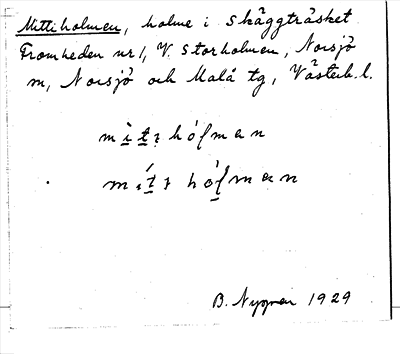 Mittiholmen, holme i Skäggträsket
Fromheden nr 1, V. Storholmen, Norsjö
m, Norsjö och Malå tg, Västerb. l.
B. Nygren 1929